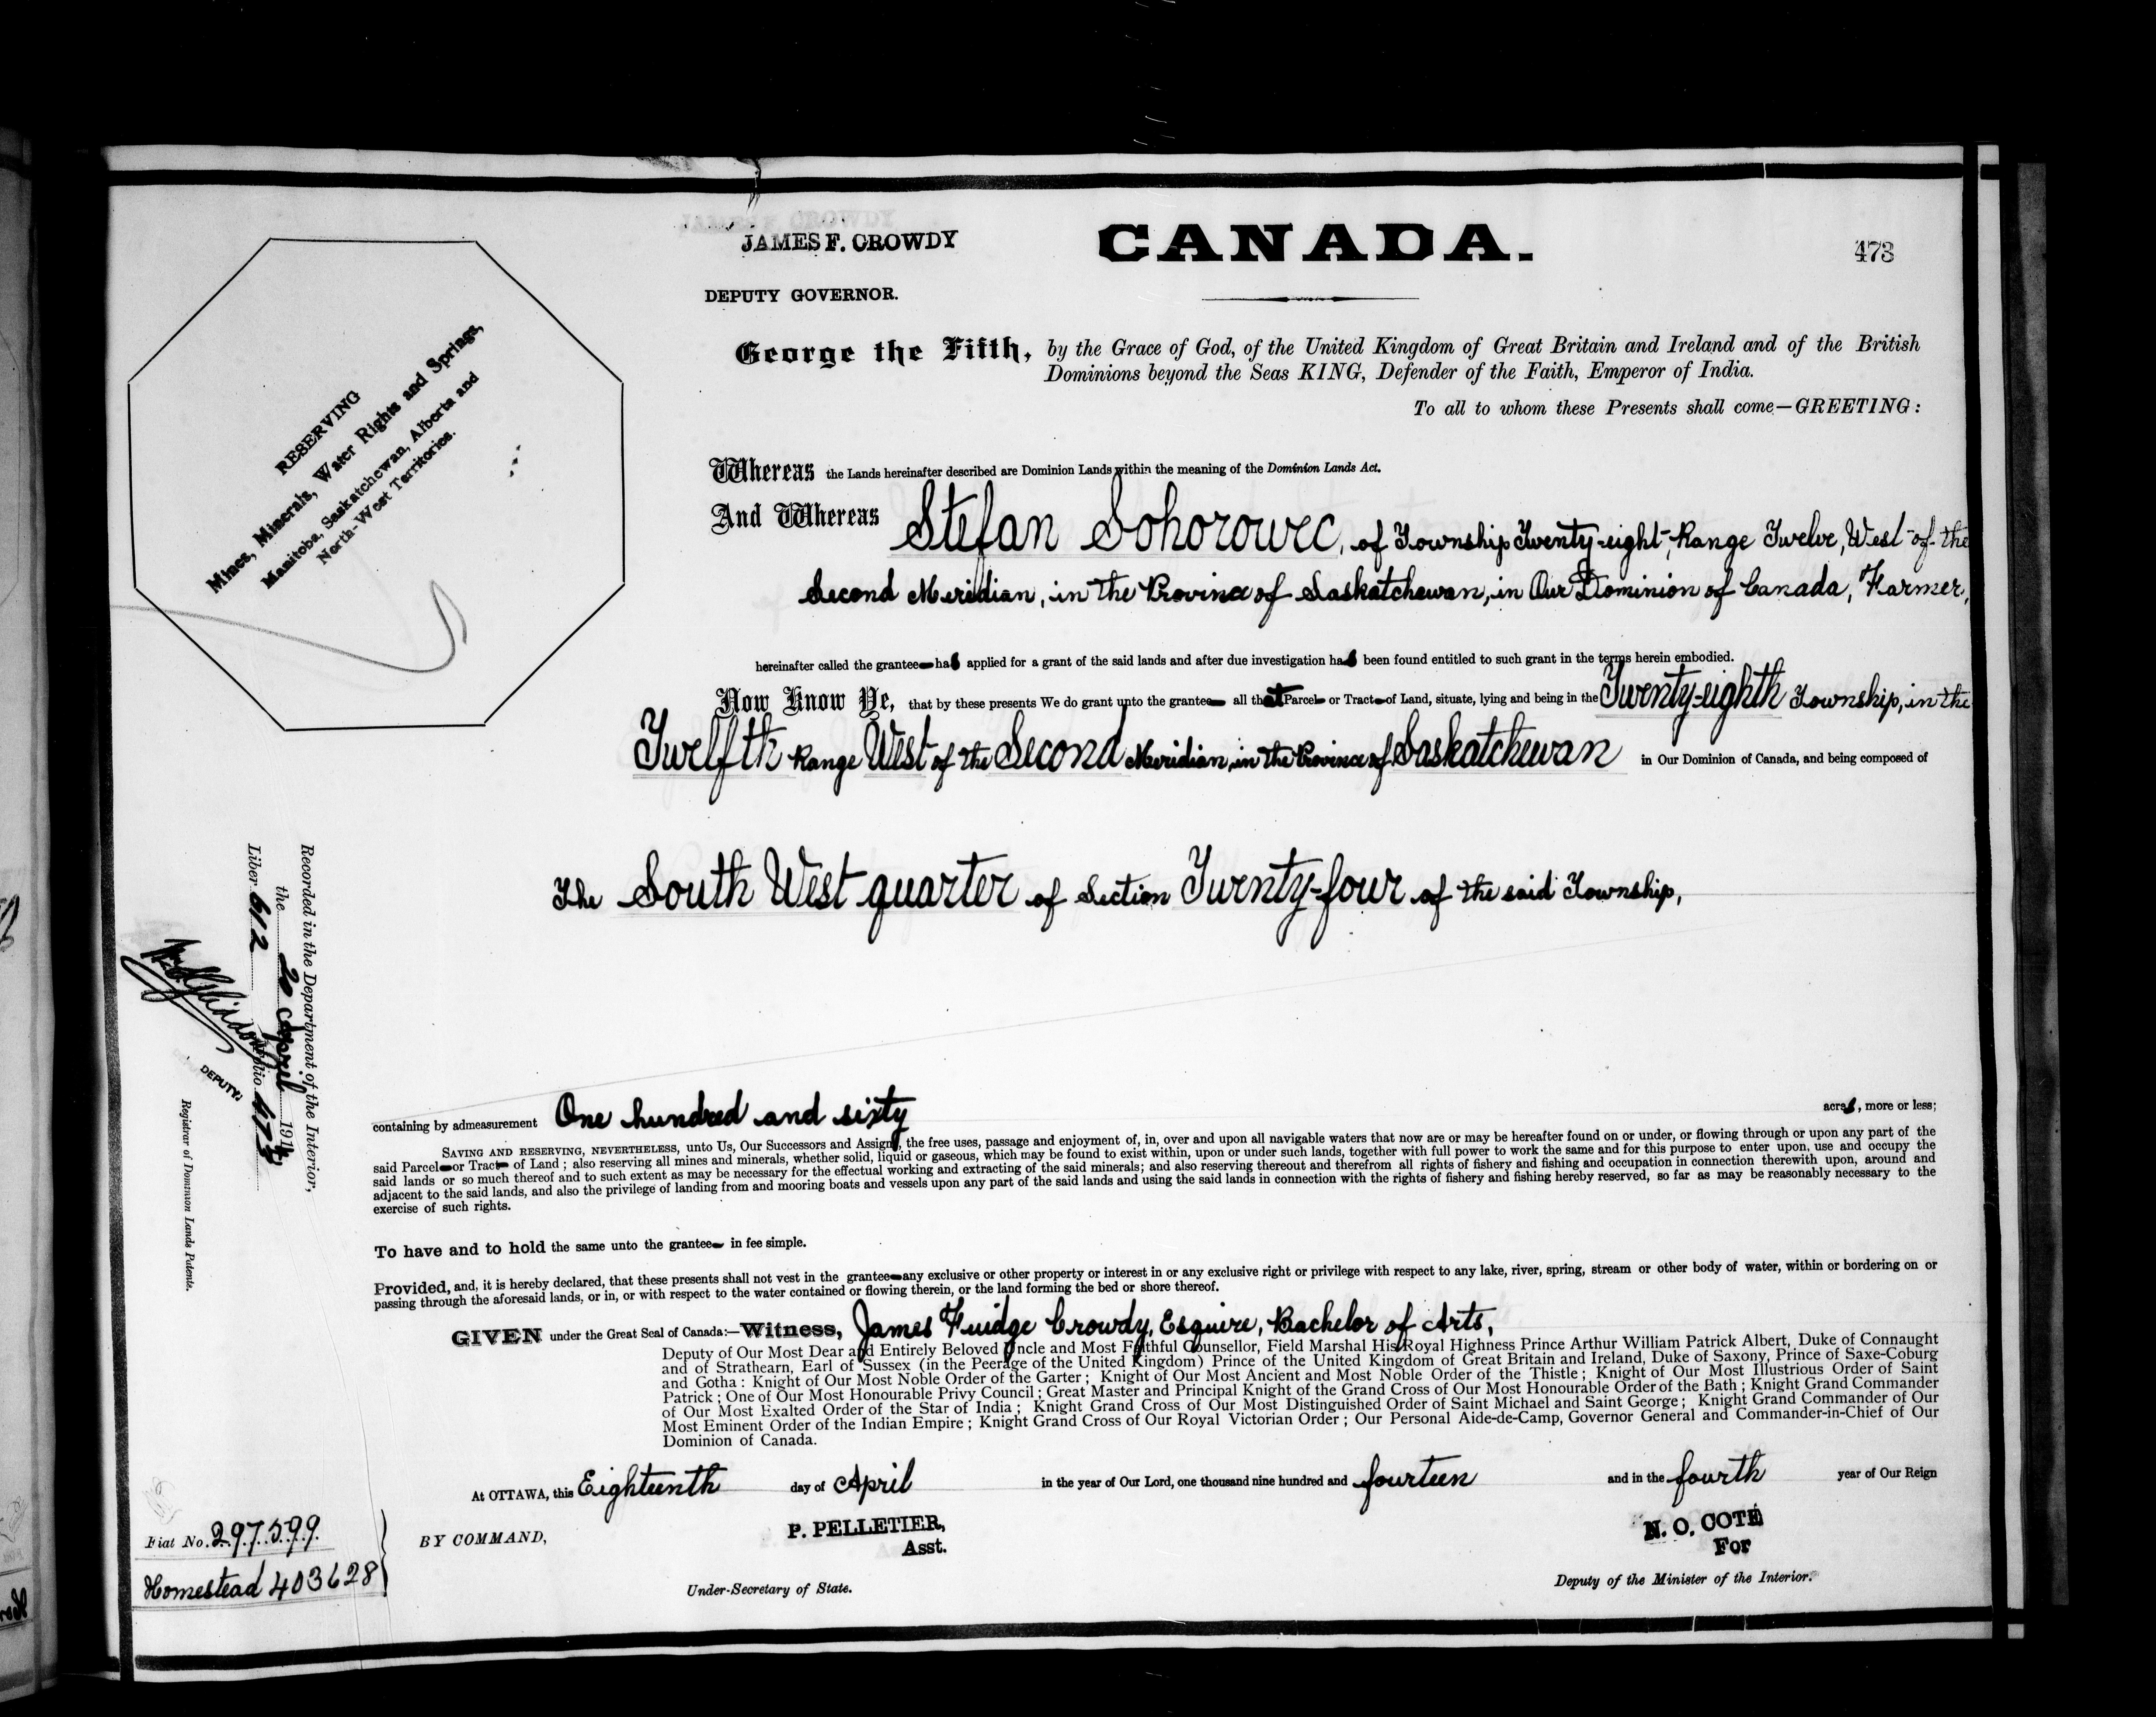 JAMES F. CROWDY
CANADA.
473
DEPUTY GOVERNOR.
George the Fifth, by the Grace of God, of the United Kingdom of Great Britain and Ireland and of the British
Dominions beyond the Seas KING, Defender of the Faith, Emperor of India.
To all to whom these Presents shall come—GREETING:
RESERVING
Mines, Minerals, Water Rights and Springs,
Manitoba, Saskatchewan, Alberta and
North-West Territories.
Whereas the Lands hereinafter described are Dominion Lands within the meaning of the Dominion Lands Act.
And Whereas Stefan Sohorowec, of Township Twenty-eight, Range Twelve, West of the
Second Meridian, in the Province of Saskatchewan, in Our Dominion of Canada, Farmer,
hereinafter called the grantee has applied for a grant of the said lands and after due investigation has been found entitled to such grant in the terms herein embodied.
Now Know Ye, that by these presents We do grant unto the grantee all that Parcel or Tract of Land, situate, lying and being in the Twenty-eighth Township, in the
Twelfth Range West of the Second Meridian, in the Province of Saskatchewan in Our Dominion of Canada, and being composed of
The South West quarter of Section Twenty-four of the said Township,
Recorded in the Department of the Interior,
the 20 April 1914
Liber 612 Folio 473
DEPUTY.
Registrar of Dominion Lands Patents.
containing by admeasurement One hundred and sixty acres, more or less;
SAVING AND RESERVING, NEVERTHELESS, unto Us, Our Successors and Assigns, the free uses, passage and enjoyment of, in, over and upon all navigable waters that now are or may be hereafter found on or under, or flowing through or upon any part of the
said Parcel or Tract of Land; also reserving all mines and minerals, whether solid, liquid or gaseous, which may be found to exist within, upon or under such lands, together with full power to work the same and for this purpose to enter upon, use and occupy the
said lands or so much thereof and to such extent as may be necessary for the effectual working and extracting of the said minerals; and also reserving thereout and therefrom all rights of fishery and fishing and occupation in connection therewith upon, around and
adjacent to the said lands, and also the privilege of landing from and mooring boats and vessels upon any part of the said lands and using the said lands in connection with the rights of fishery and fishing hereby reserved, so far as may be reasonably necessary to the
exercise of such rights.
To have and to hold the same unto the grantee in fee simple.
Provided, and, it is hereby declared, that these presents shall not vest in the grantee any exclusive or other property or interest in or any exclusive right or privilege with respect to any lake, river, spring, stream or other body of water, within or bordering on or
passing through the aforesaid lands, or in, or with respect to the water contained or flowing therein, or the land forming the bed or shore thereof.
GIVEN under the Great Seal of Canada:—Witness, James Fuidge Crowdy, Esquire, Bachelor of Arts,
Deputy of Our Most Dear and Entirely Beloved Uncle and Most Faithful Counsellor, Field Marshal His Royal Highness Prince Arthur William Patrick Albert, Duke of Connaught
and of Strathearn, Earl of Sussex (in the Peerage of the United Kingdom) Prince of the United Kingdom of Great Britain and Ireland, Duke of Saxony, Prince of Saxe-Coburg
and Gotha: Knight of Our Most Noble Order of the Garter; Knight of Our Most Ancient and Most Noble Order of the Thistle; Knight of Our Most Illustrious Order of Saint
Patrick; One of Our Most Honourable Privy Council; Great Master and Principal Knight of the Grand Cross of Our Most Honourable Order of the Bath; Knight Grand Commander
of Our Most Exalted Order of the Star of India; Knight Grand Cross of Our Most Distinguished Order of Saint Michael and Saint George; Knight Grand Commander of Our
Most Eminent Order of the Indian Empire; Knight Grand Cross of Our Royal Victorian Order; Our Personal Aide-de-Camp, Governor General and Commander-in-Chief of Our
Dominion of Canada.
At OTTAWA, this Eighteenth day of April in the year of Our Lord, one thousand nine hundred and fourteen and in the fourth year of Our Reign
Fiat No. 297599
Homestead 403628
BY COMMAND,
P. PELLETIER,
Asst.
Under-Secretary of State.
N. O. COTÉ
For
Deputy of the Minister of the Interior.